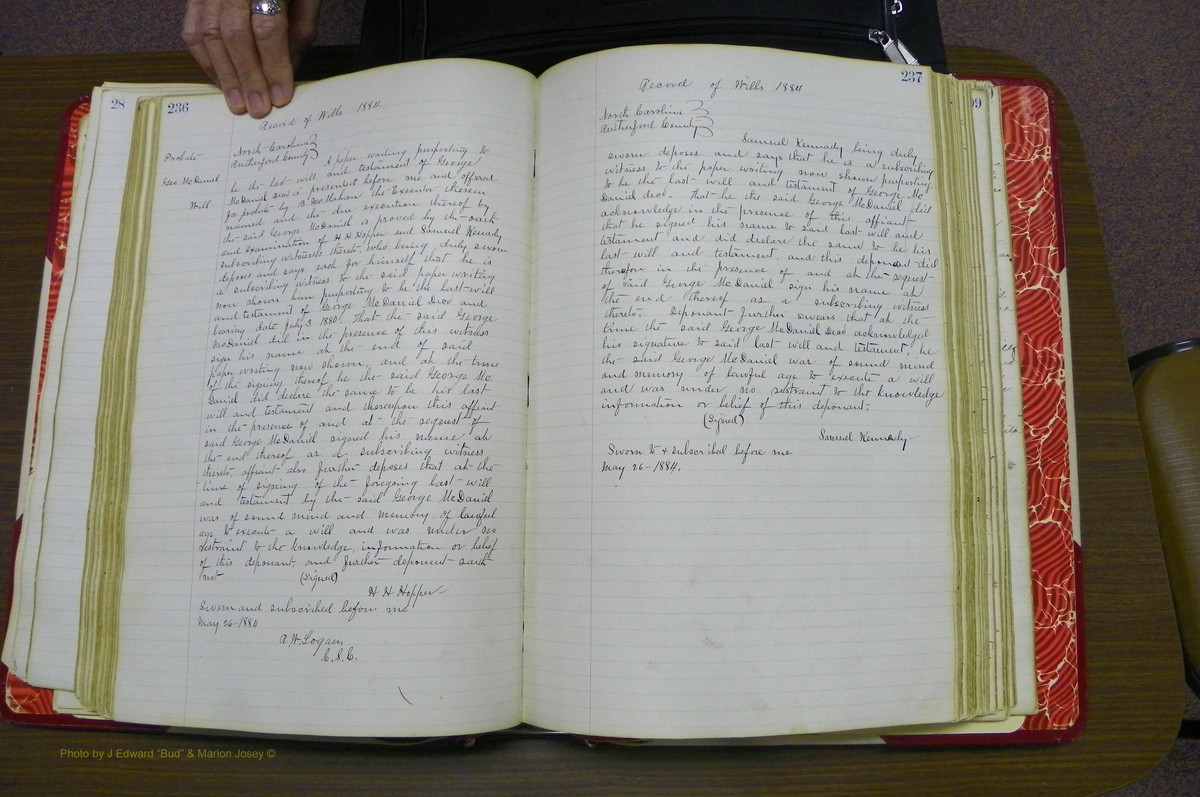 28
236
Record of Wills 1884.
Probate
Geo McDaniel
Will
North Carolina
Rutherford County
A paper writing purporting to
be the last will and testament of George
McDaniel Decd is presented before me and offered
for probate by B McMahan the Executor therein
named and the due execution thereof by
the said George McDaniel is proved by the oath
and Examination of H H Hopper and Samuel Kennedy
subscribing witnesses thereto, who being duly sworn
deposes and says each for himself that he is
a subscribing witness to the said paper writing
now shown him purporting to be the last will
and testament of George McDaniel Decd and
bearing date July 3 1880. That the said George
McDaniel did in the presence of this witness
sign his name at the end of said
paper writing now shown, and at the time
of the signing thereof he the said George Mc
Daniel did declare the same to be his last
will and testament and thereupon this affiant
in the presence of and at the request of
said George McDaniel signed his name at
the end thereof as a subscribing witness
thereto, affiant also further deposes that at the
time of signing of the foregoing last will
and testament by the said George McDaniel
was of sound mind and memory of lawful
age to execute a will and was under no
restraint to the knowledge, information or belief
of this deponant, and further deponent saith
not (Signed)
H H Hopper
Sworn and subscribed before me
May 26-1884
A. H. Logan,
C.S.C.
237
99
Record of Wills 1884
North Carolina
Rutherford County
Samuel Kennedy being duly
sworn deposes and says that he is a subscribing
witness to the paper writing now shown purporting
to be the last will and testament of George Mc
Daniel decd. That he the said George McDaniel did
acknowledge in the presence of this affiant
that he signed his name to said last will and
testament and did declare the same to be his
last will and testament, and this deponant did
therefor in the presence of and at the request
of said George McDaniel sign his name at
the end thereof as a subscribing witness
thereto. Deponant further swears that at the
time the said George McDaniel Decd acknowledged
his signature to said last will and testament, he
the said George McDaniel was of sound mind
and memory of lawful age to execute a will
and was under no restraint to the knowledge
information or belief of this deponant.
(Signed)
Samuel Kennedy
Sworn to & subscribed before me
May 26-1884.
Photo by J Edward "Bud" & Marion Josey ©